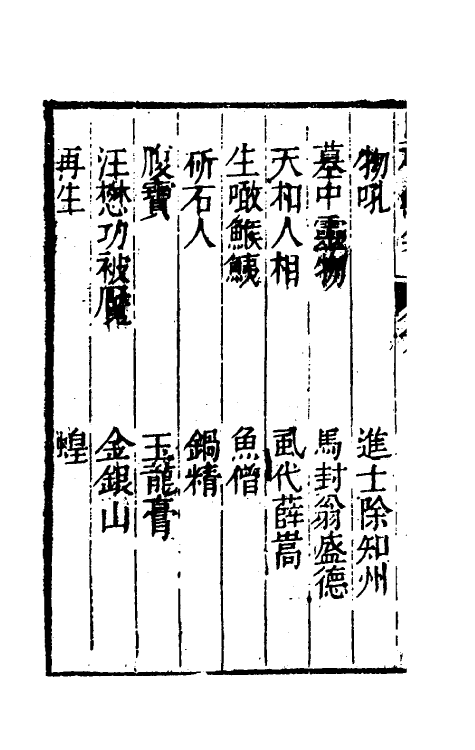 物吼　進士除知州
墓中靈物　馬封翁盛德
天和人相　虱代薛嵩
生噉鯸鮧　魚僧
斫石人　鍋精
腹寶　玉龍膏
汪懋功被魘　金銀山
再生　蝗